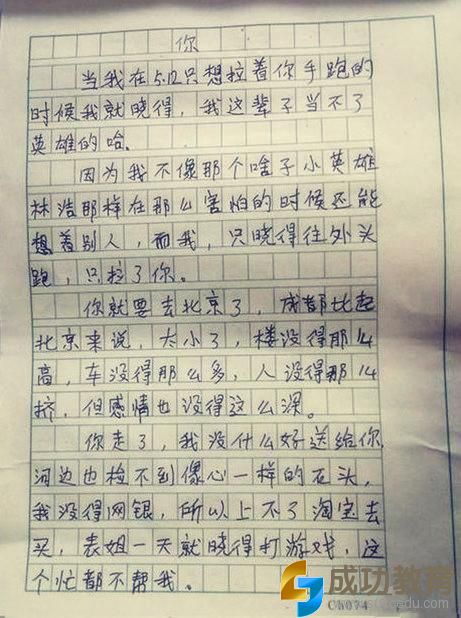 你
当我在5.12只想拉着你手跑的
时候我就晓得，我这辈子当不了
英雄的哈。
因为我不像那个啥子小英雄
林浩那样在那么害怕的时候还能
想着别人，而我，只晓得往外头
跑，只拉了你。
你就要去北京了，成都比起
北京来说，太小了，楼没得那么
高，车没得那么多，人没得那么
挤，但感情也没得这么深。
你走了，我没什么好送给你
河边也检不到像心一样的石头，
我没得网银，所以上不了淘宝去
买，表姐一天就晓得打游戏，这
个忙都不帮我。
成功教育
Ch074
edu.com